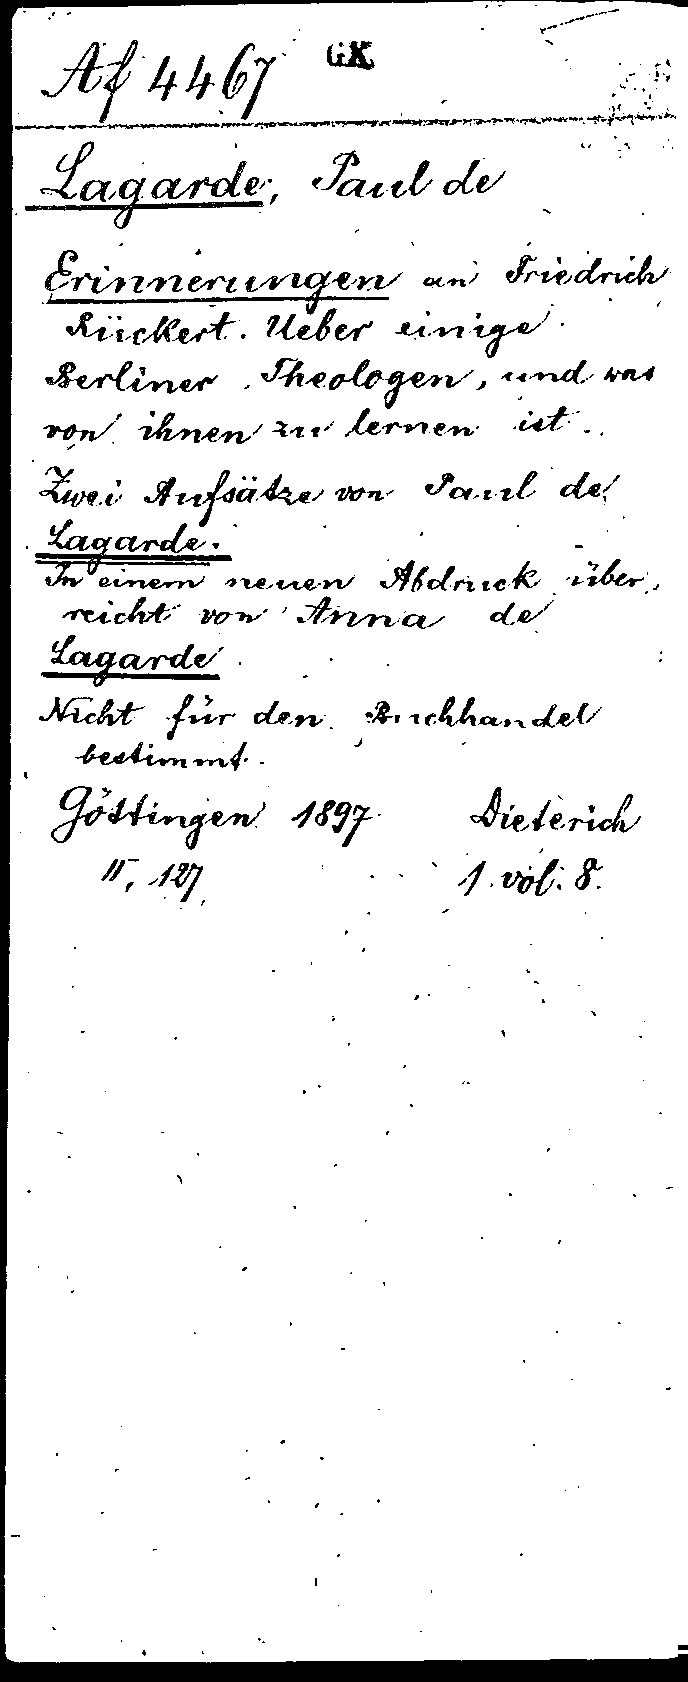 Af 4467 GK
Lagarde, Paul de
Erinnerungen an Friedrich
Rückert. Ueber einige
Berliner Theologen, und was
von ihnen zu lernen ist.
Zwei Aufsätze von Paul de
Lagarde.
In einem neuen Abdruck über,
reicht von Anna de
Lagarde
Nicht für den Buchhandel
bestimmt.
Göttingen 1897 Dieterich
II, 127 1 vol. 8.